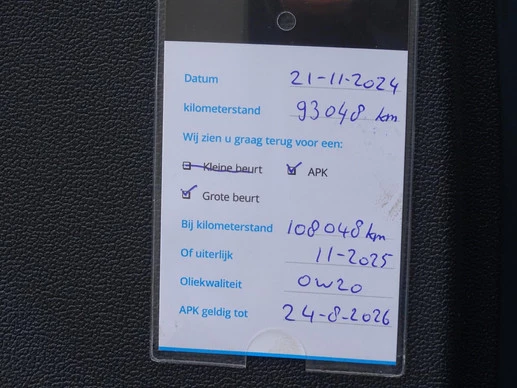 Datum 21-11-2024
kilometerstand 93048 km
Wij zien u graag terug voor een:
Kleine beurt APK
Grote beurt
Bij kilometerstand 108048 km
Of uiterlijk 11-2025
Oliekwaliteit 0W20
APK geldig tot 24-8-2026